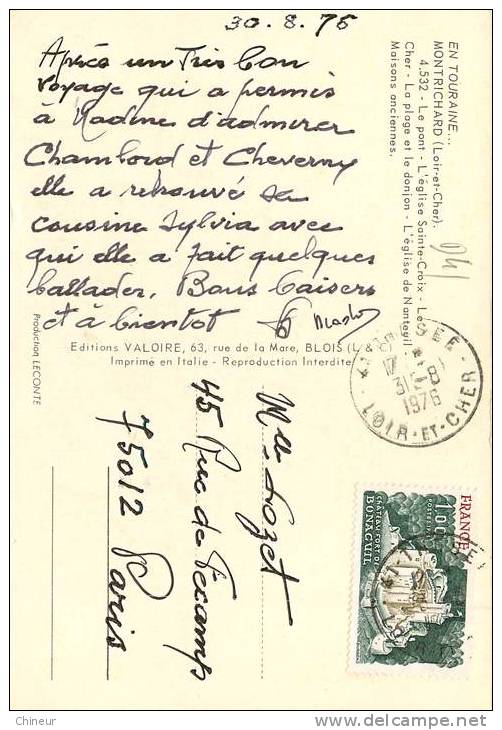 30.8.76
Après un très bon
voyage qui a permis
à Nadine d'admirer
Chambord et Cheverny
elle a retrouvé sa
cousine Sylvia avec
qui elle a fait quelques
ballades, Bons baisers
et à bientot
EN TOURAINE...
MONTRICHARD (Loir-et-Cher).
4.532 - Le pont - L'église Sainte-Croix - Le
Cher - La plage et le donjon - L'église de Nanteuil
Maisons anciennes.
Production LECONTE
Editions VALOIRE, 63, rue de la Mare, BLOIS (L &
Imprimé en Italie - Reproduction Interdite
17
31-8
1976
LOIR-ET-CHER
Mlle Lozet
45 Rue de Fecamp
75012 Paris
FRANCE
1.00
POSTES
CHATEAU FORT DE
BONAGUIL
Chineur
http://www.delcampe.net